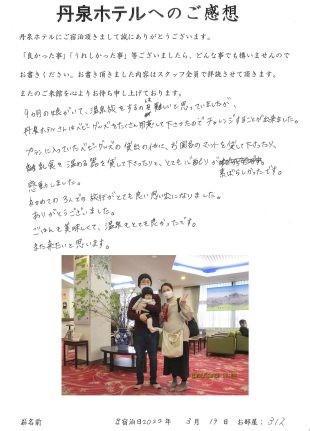 丹泉ホテルへのご感想
丹泉ホテルにご宿泊頂きまして誠にありがとうございます。
「良かった事」「うれしかった事」等ございましたら、どんな事でも構いませんので
お書きください。お書き頂きました内容はスタッフ全員で拝読させて頂きます。
またのご来館を心よりお待ち申し上げております。
9ヵ月の娘がいて、温泉旅をするのは難しいと思っていましたが、
丹泉ホテルさんはベビーグッズをたくさん用意して下さったのでチャレンジすることが出来ました。
プランに入っていたベビーグッズの貸出の他に、お風呂のマットを貸して下さったり、
離乳食を温める器を貸して下さったりと、とても心配りが素晴らしかったです。
感動しました。
初めての3人での旅行がとても良い思い出になりました。
ありがとうございました。
ごはんも美味しくて、温泉もとても良かったです。
また来たいと思います。
お名前 ご宿泊日2022年 3月 19日 お部屋: 312